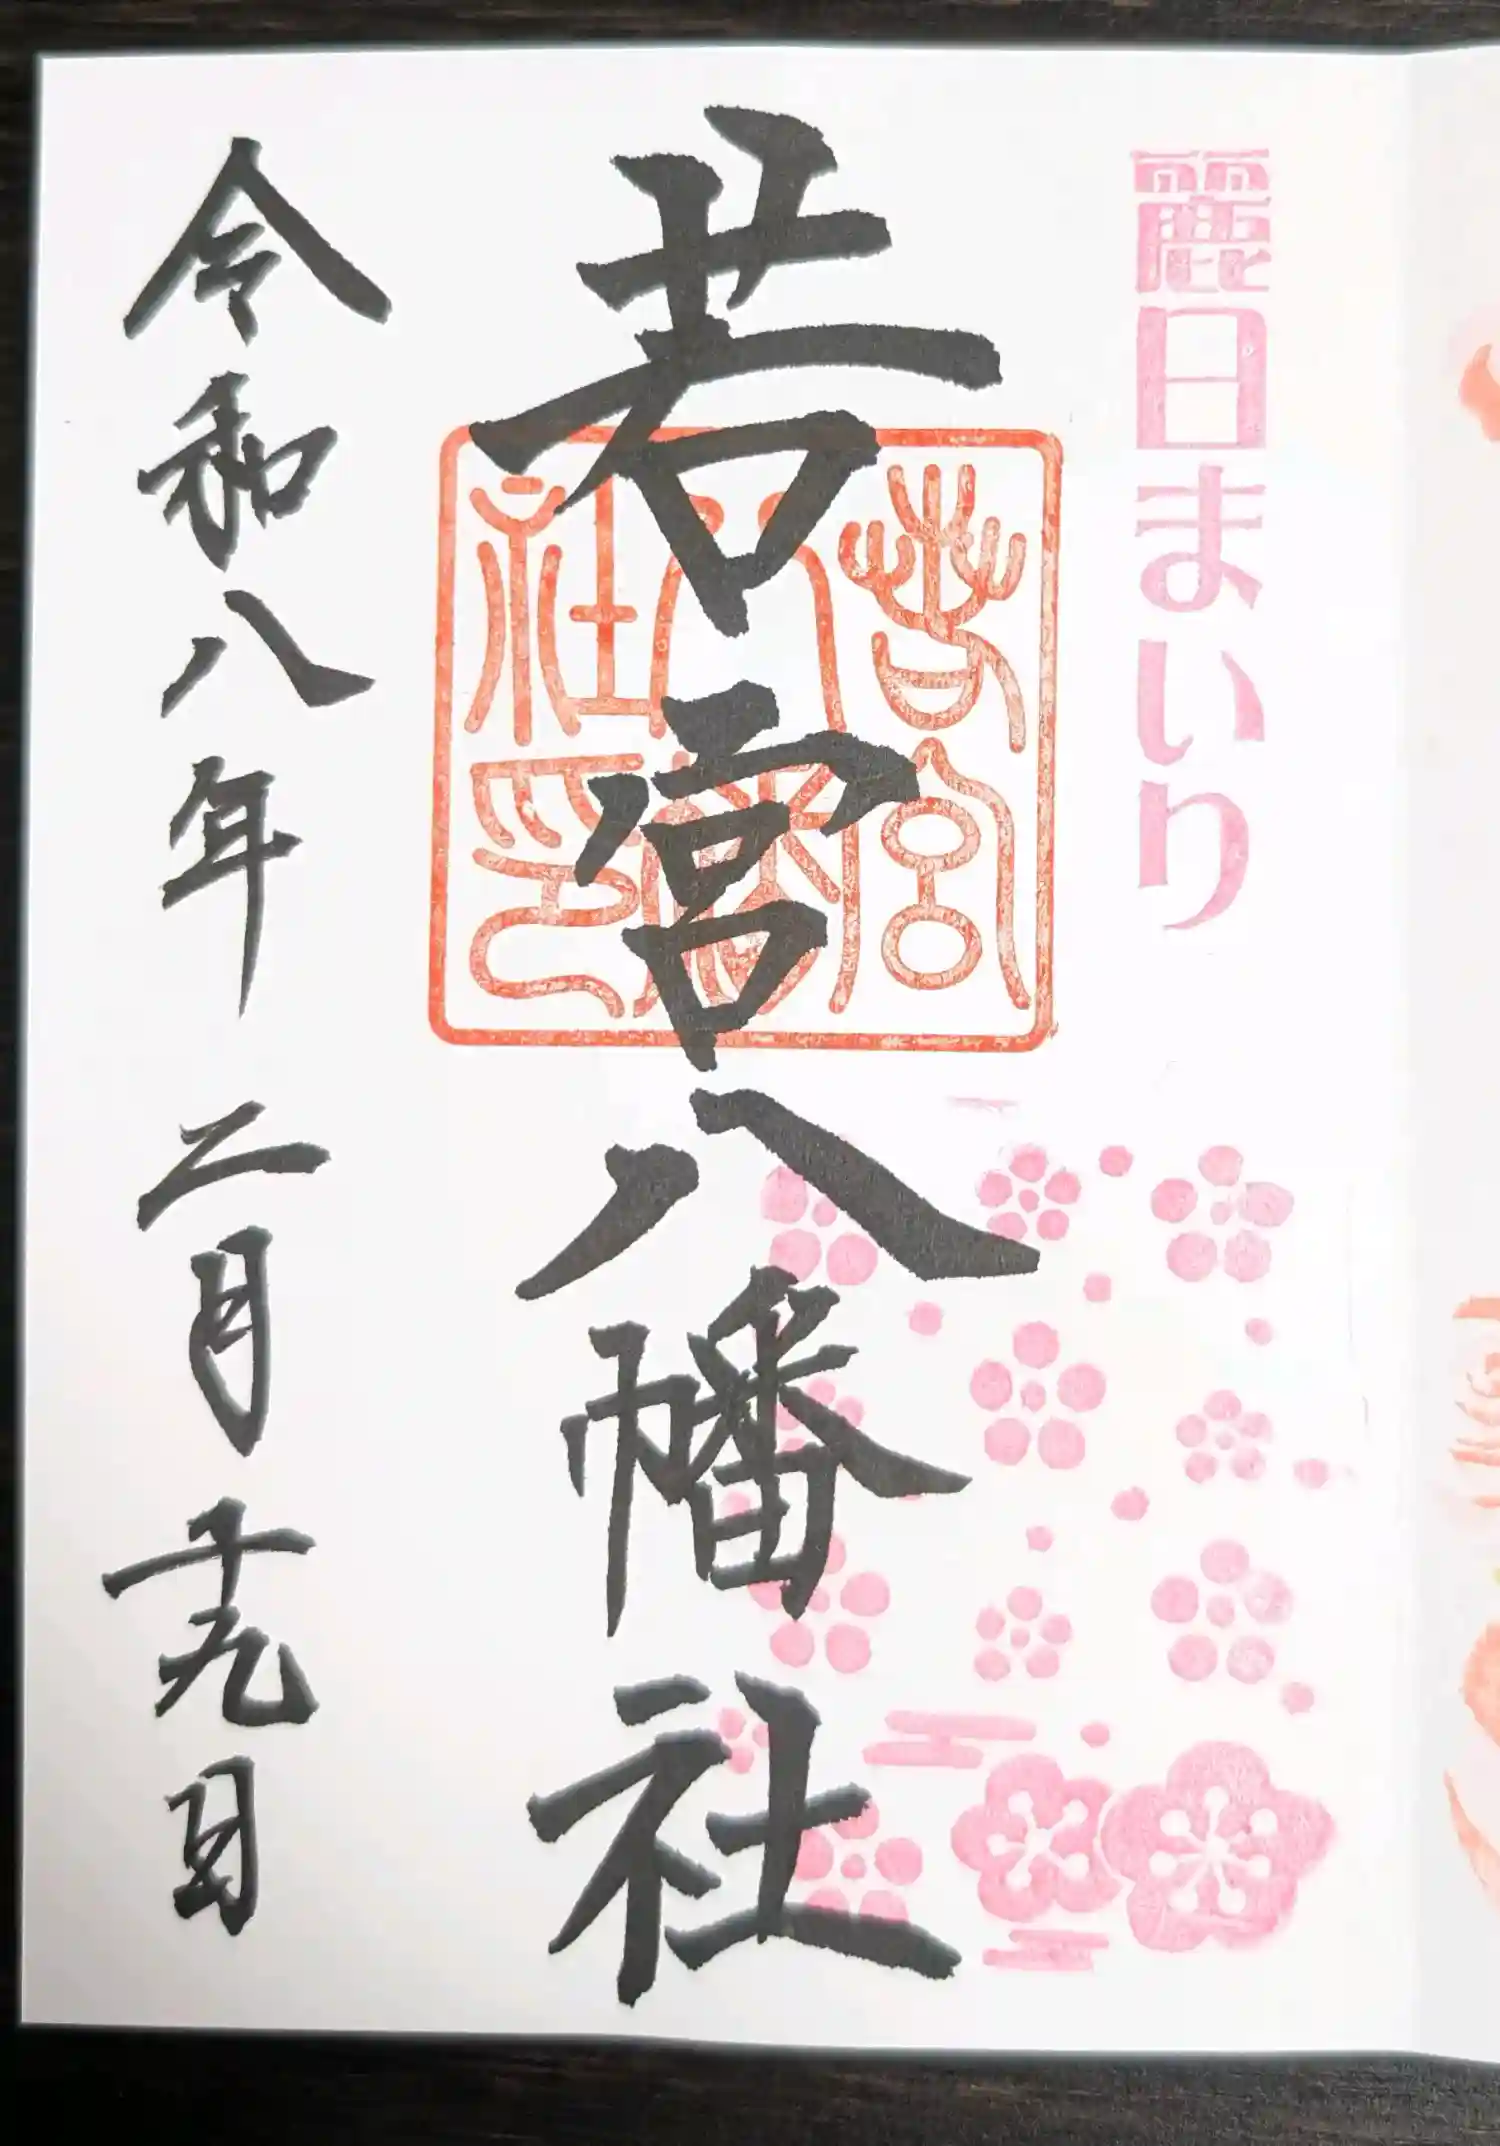 麗日まいり
若宮八幡社
若宮八幡社印
令和八年二月十九日